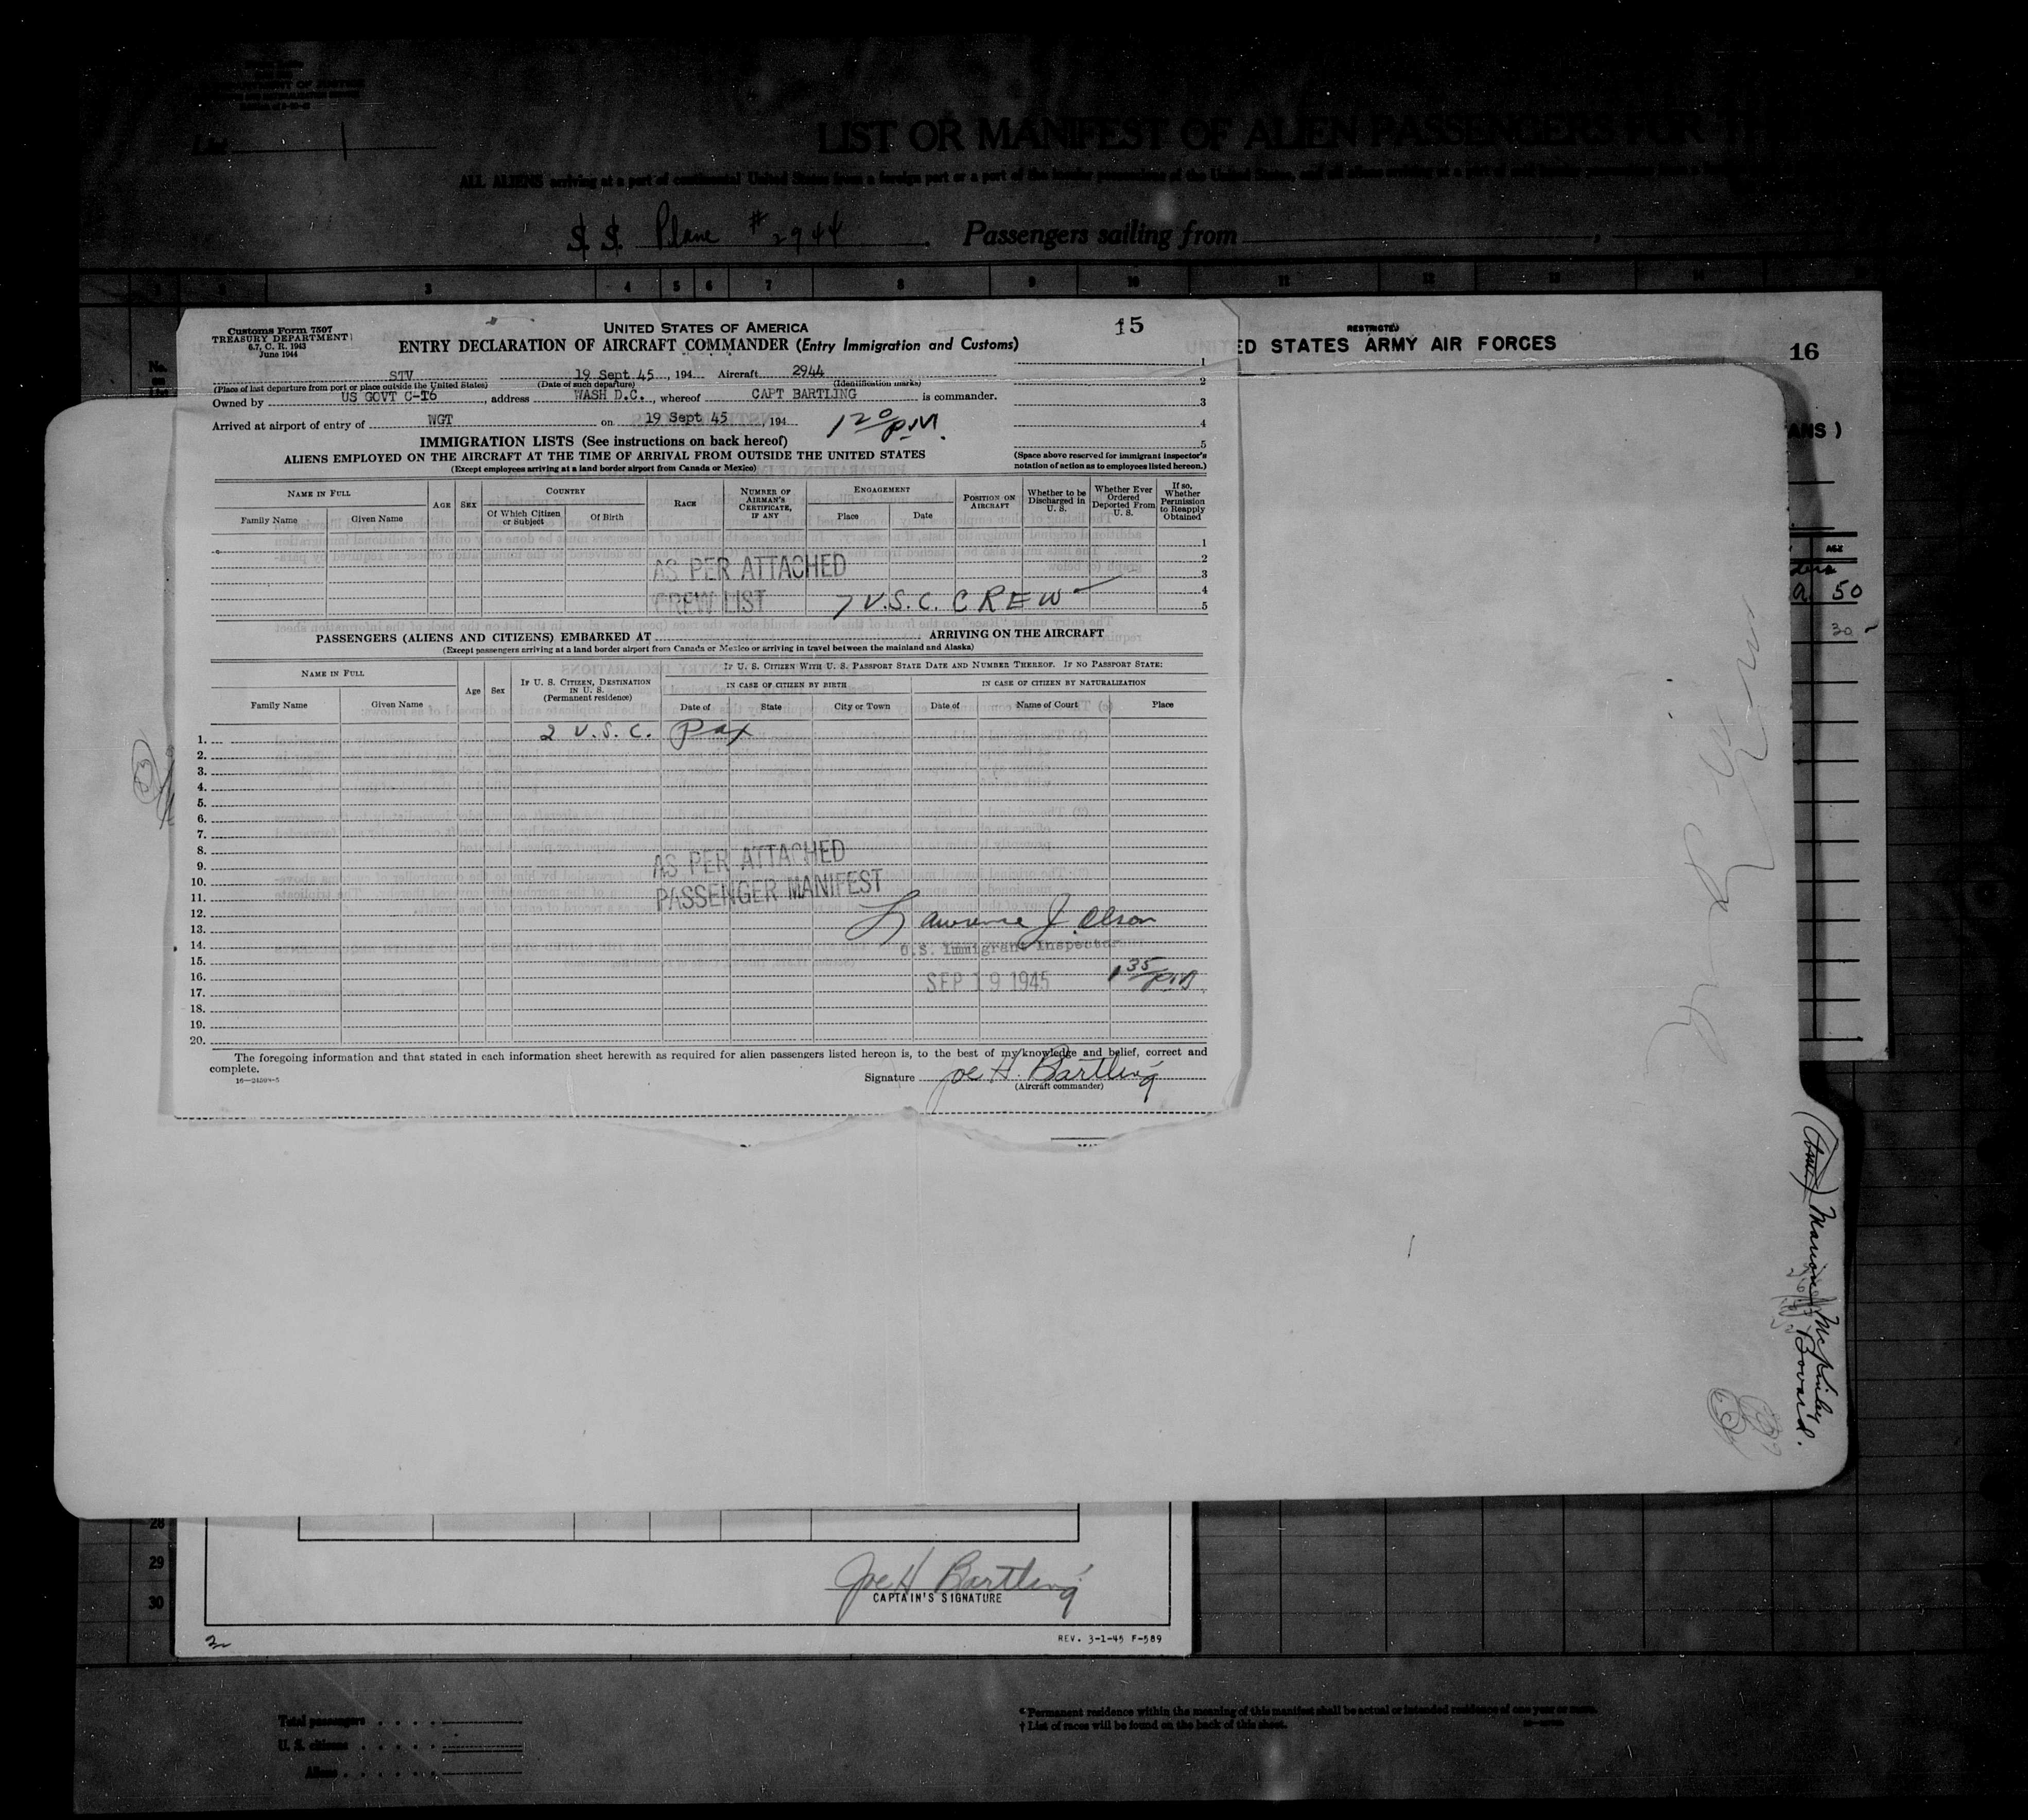 List 1
LIST OR MANIFEST OF ALIEN PASSENGERS FOR
ALL ALIENS arriving at a port of continental United States from a foreign port or a port of the insular possessions of the United States, and all aliens arriving at a port of
S. S. Plane # 2944 Passengers sailing from
3 4 5 6 7 8 9 10 11 12 13 14
Customs Form 7507
TREASURY DEPARTMENT
6.7, C. R. 1943
June 1944
UNITED STATES OF AMERICA
15
ENTRY DECLARATION OF AIRCRAFT COMMANDER (Entry Immigration and Customs)
STV 19 Sept 45, 194 Aircraft 2944
(Place of last departure from port or place outside the United States) (Date of such departure) (Identification marks)
Owned by US GOVT C-I6, address WASH D.C., whereof CAPT BARTLING is commander.
Arrived at airport of entry of WGT on 19 Sept 45, 194 1 20 P.M.
1
2
3
4
5
IMMIGRATION LISTS (See instructions on back hereof)
ALIENS EMPLOYED ON THE AIRCRAFT AT THE TIME OF ARRIVAL FROM OUTSIDE THE UNITED STATES
(Except employees arriving at a land border airport from Canada or Mexico)
(Space above reserved for immigrant inspector's notation of action as to employees listed hereon.)
NAME IN FULL
Family Name Given Name
AGE
SEX
COUNTRY
Of Which Citizen or Subject Of Birth
RACE
NUMBER OF AIRMAN'S CERTIFICATE, IF ANY
ENGAGEMENT
Place Date
POSITION ON AIRCRAFT
Whether to be Discharged in U. S.
Whether Ever Ordered Deported From U. S.
If so, Whether Permission to Reapply Obtained
1
2
3
4
5
AS PER ATTACHED
CREW LIST
7 U.S.C. CREW
PASSENGERS (ALIENS AND CITIZENS) EMBARKED AT ARRIVING ON THE AIRCRAFT
(Except passengers arriving at a land border airport from Canada or Mexico or arriving in travel between the mainland and Alaska)
NAME IN FULL
Family Name Given Name
Age
Sex
IF U. S. CITIZEN, DESTINATION IN U. S. (Permanent residence)
IF U. S. CITIZEN WITH U. S. PASSPORT STATE DATE AND NUMBER THEREOF. IF NO PASSPORT STATE:
IN CASE OF CITIZEN BY BIRTH
Date of State City or Town
IN CASE OF CITIZEN BY NATURALIZATION
Date of Name of Court Place
1. 2 U.S.C. Pax
2.
3.
4.
5.
6.
7.
8.
9.
10.
11.
12.
13.
14.
15.
16.
17.
18.
19.
20.
AS PER ATTACHED
PASSENGER MANIFEST
Lawrence J. Olson
U.S. Immigrant Inspector
SEP 19 1945 1 35 P.M.
The foregoing information and that stated in each information sheet herewith as required for alien passengers listed hereon is, to the best of my knowledge and belief, correct and
complete.
16—24598-5
Signature Joe H. Bartling
(Aircraft commander)
RESTRICTED
UNITED STATES ARMY AIR FORCES
16
ANS )
AGE
50
30
Marion McKinley
Bovard.
28
29
30
Joe H Bartling
CAPTAIN'S SIGNATURE
REV. 3-1-45 F-589
2
Total passengers
U. S. citizens
Aliens
* Permanent residence within the meaning of this manifest shall be actual or intended residence of one year or more.
† List of races will be found on the back of this sheet.